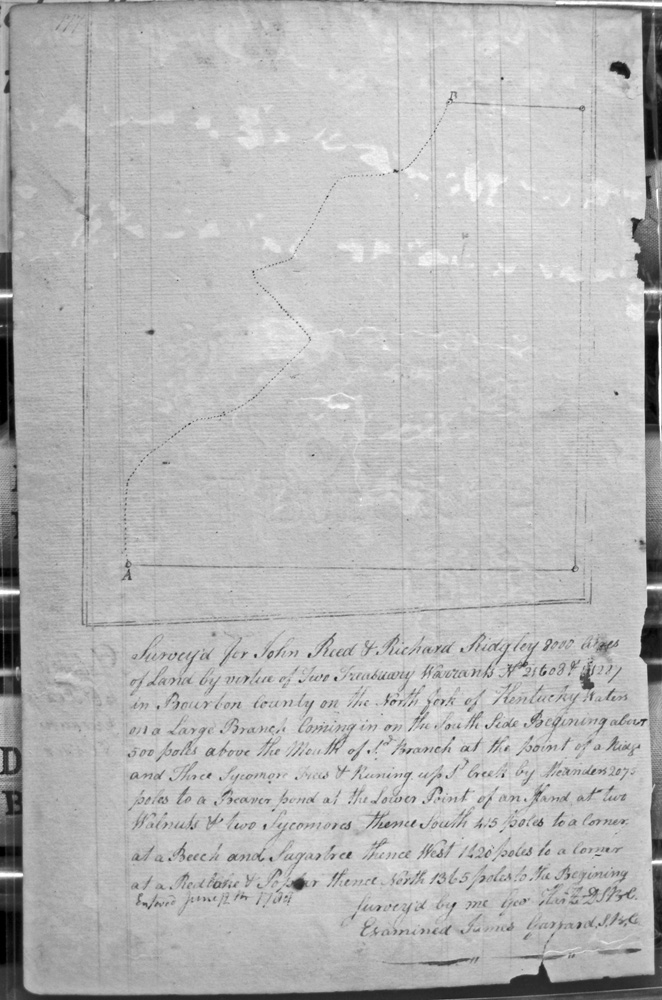 B
A
Survey'd for John Reed & Richard Ridgley 8000 Acres
of Land by virtue of Two Treasuary Warrants No 21608 &
in Bourbon County on the North fork of Kentucky Waters
on a Large Branch Coming in on the South Side Begining about
500 poles above the Mouth of Sd Branch at the point of a Ridge
and Three Sycomore Trees & Runing up Sd Creek by Meanders 2075
poles to a Beaver pond at the Lower Point of an Iland at two
Walnuts & two Sycomores thence South 415 poles to a Corner
at a Beech and Sugartree thence West 1420 poles to a Corner
at a Red Oake & Poplar thence North 1365 poles to the Begining
June
Survey'd by me Geo D.S.B.C.
Examined James Garrard S.B.C.